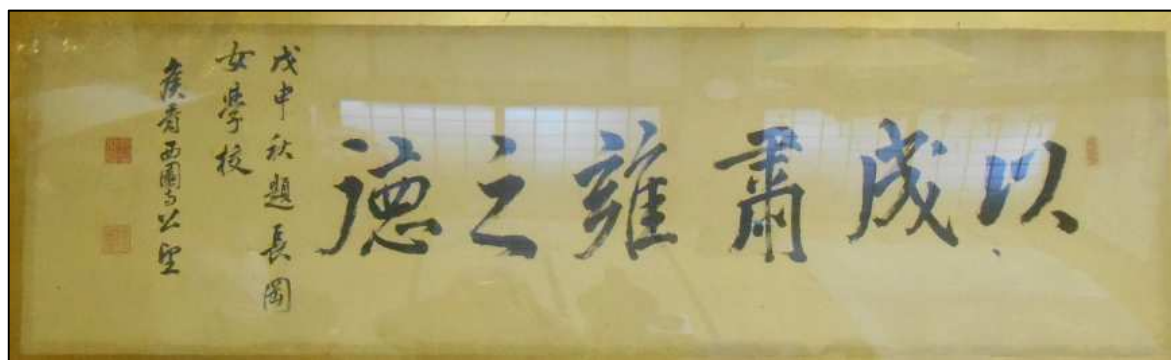 以成肅雝之德
戊申秋題長岡
女學校
侯爵西園寺公望